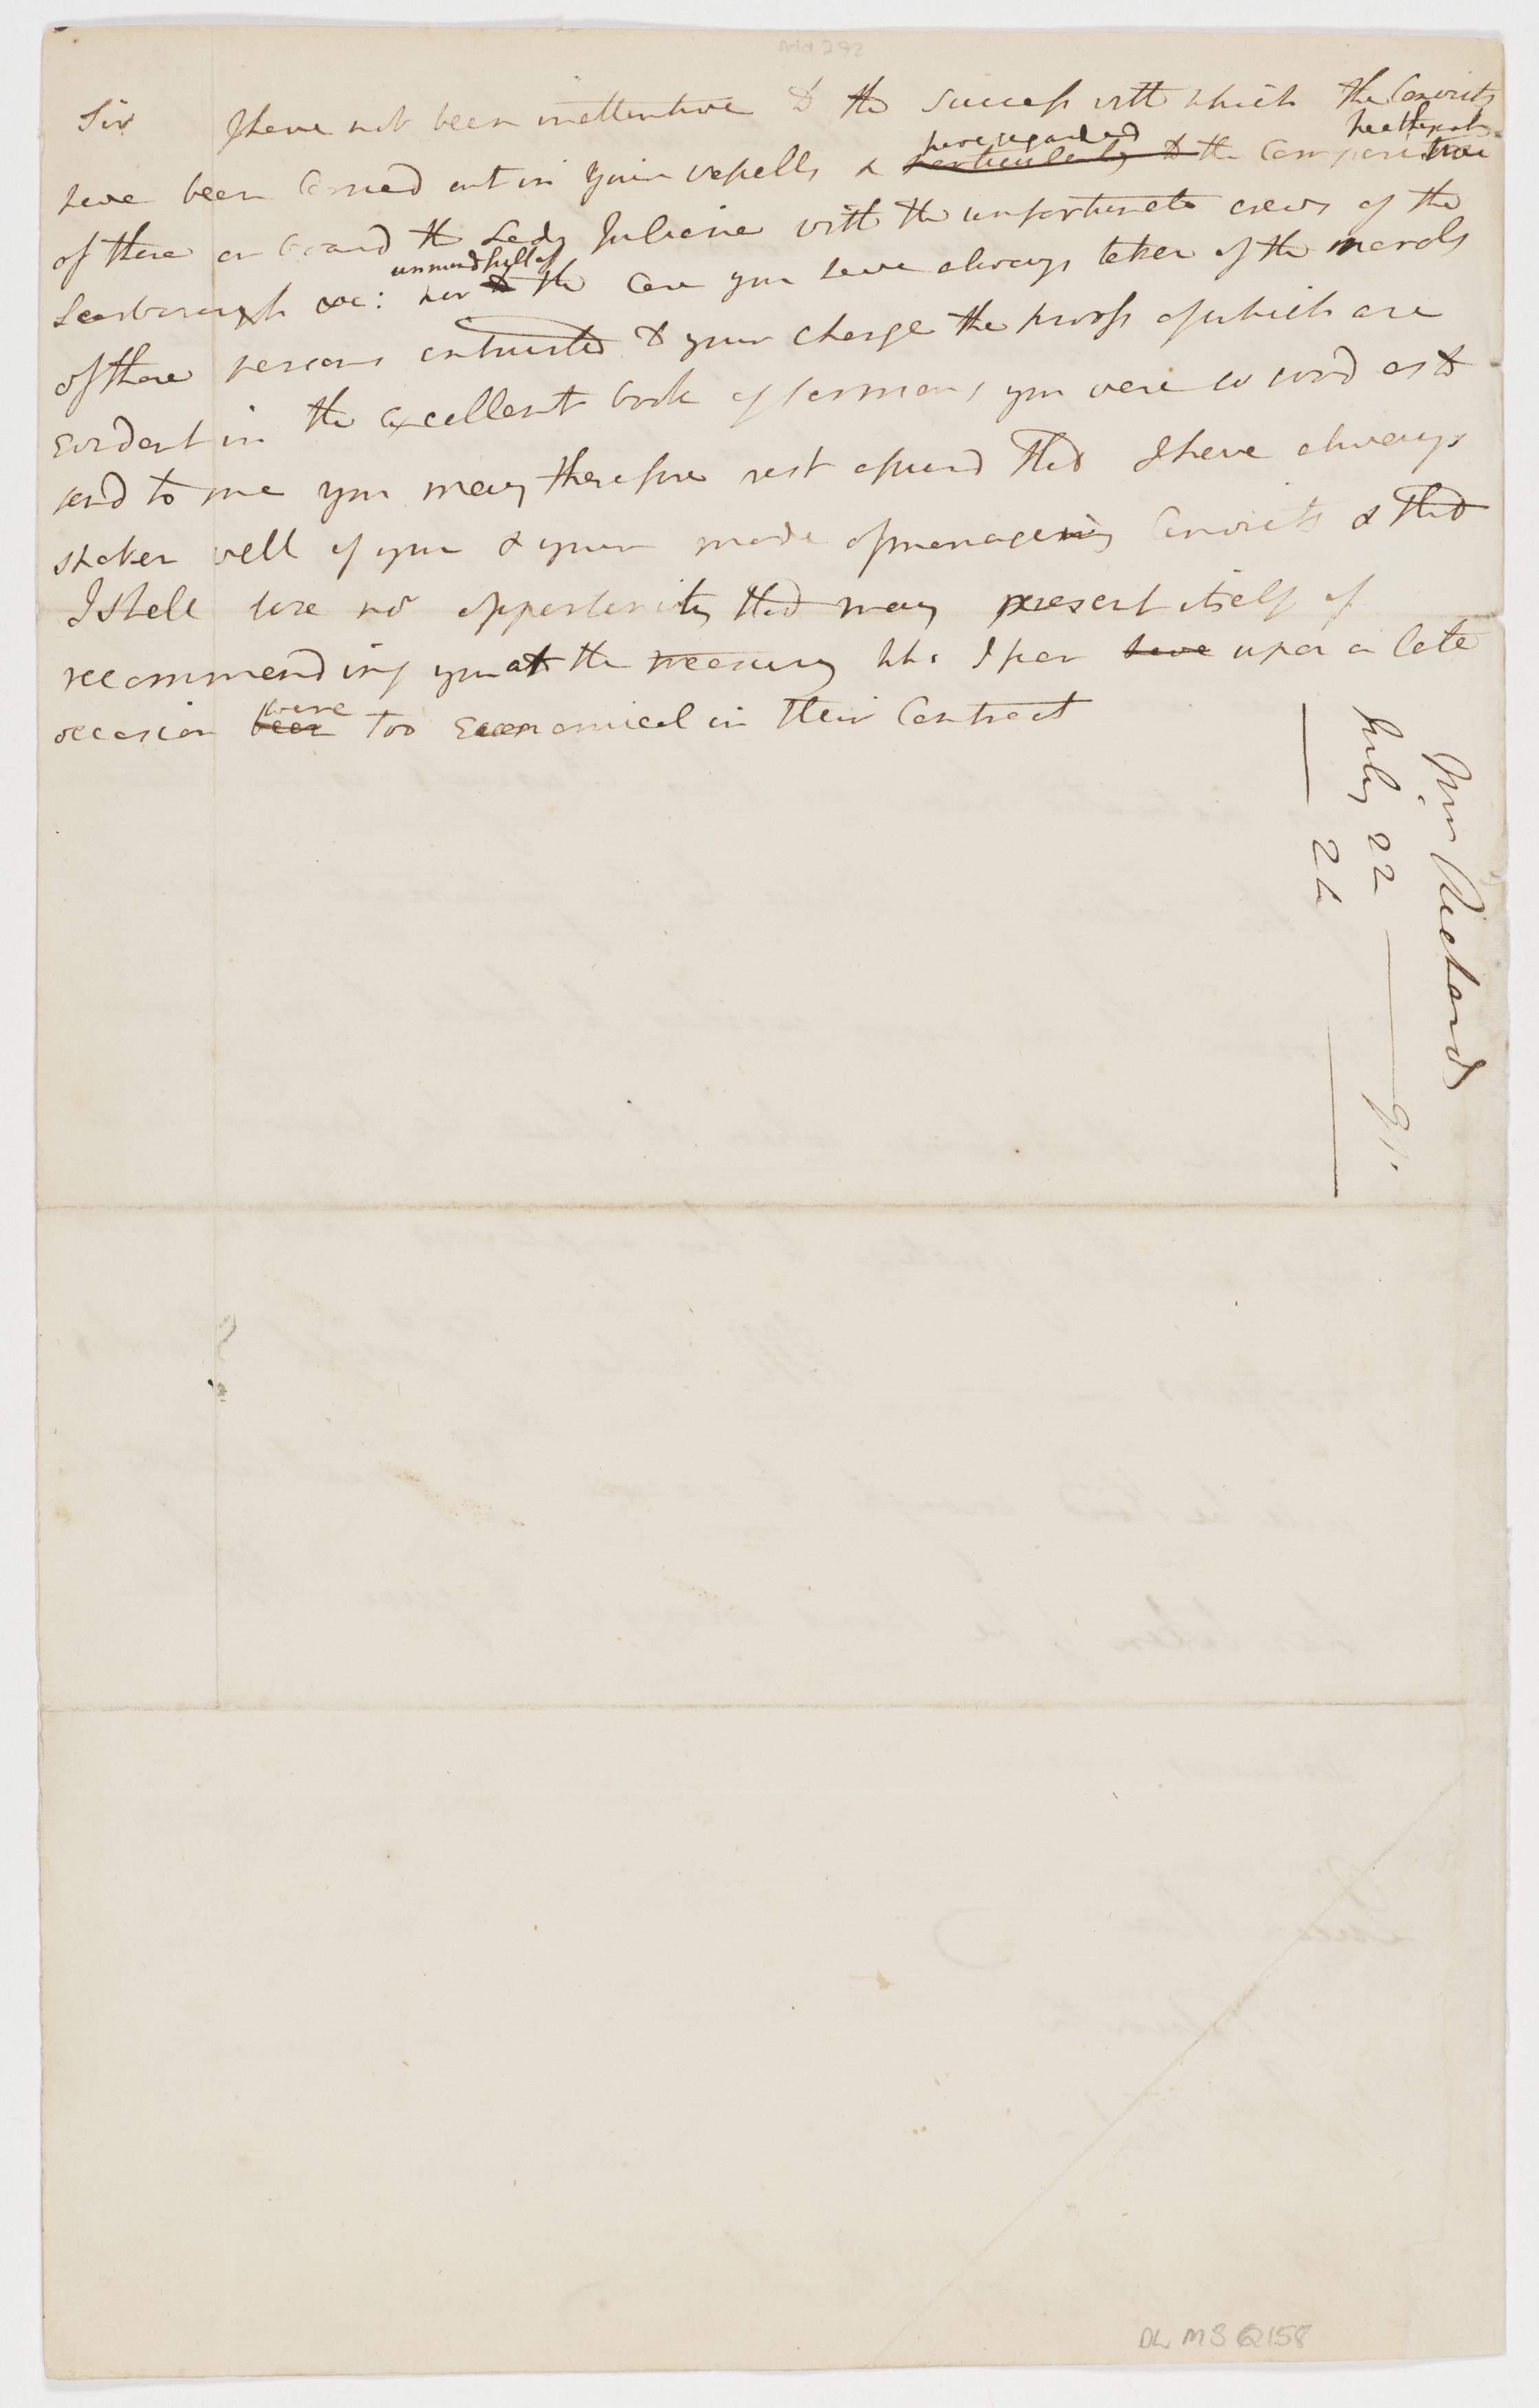 Sir I have not been inattentive to the success with which the Convicts
have been Carried out in your vessells & particularly to have regarded the Comparitive healthynes
of those on board the Lady Juliana with the unfortunate crews of the
Scarborough &c: nor to unmindfull of the Care you have always taken of the morals
of those persons intrusted to your charge the proofs of which are
Evident in the excellent book of sermons you were so good as to
send to me you may therefore rest assurd that I have always
spoken well of you & your mode of managing Convicts & that
I shall lose no opportunity that may present itself of
recommending you at the treasury who I fear have upon a late
occasion been were too Economical in their Contract
Wm Richards
July 22 — 91.
— 24
DL MS Q158